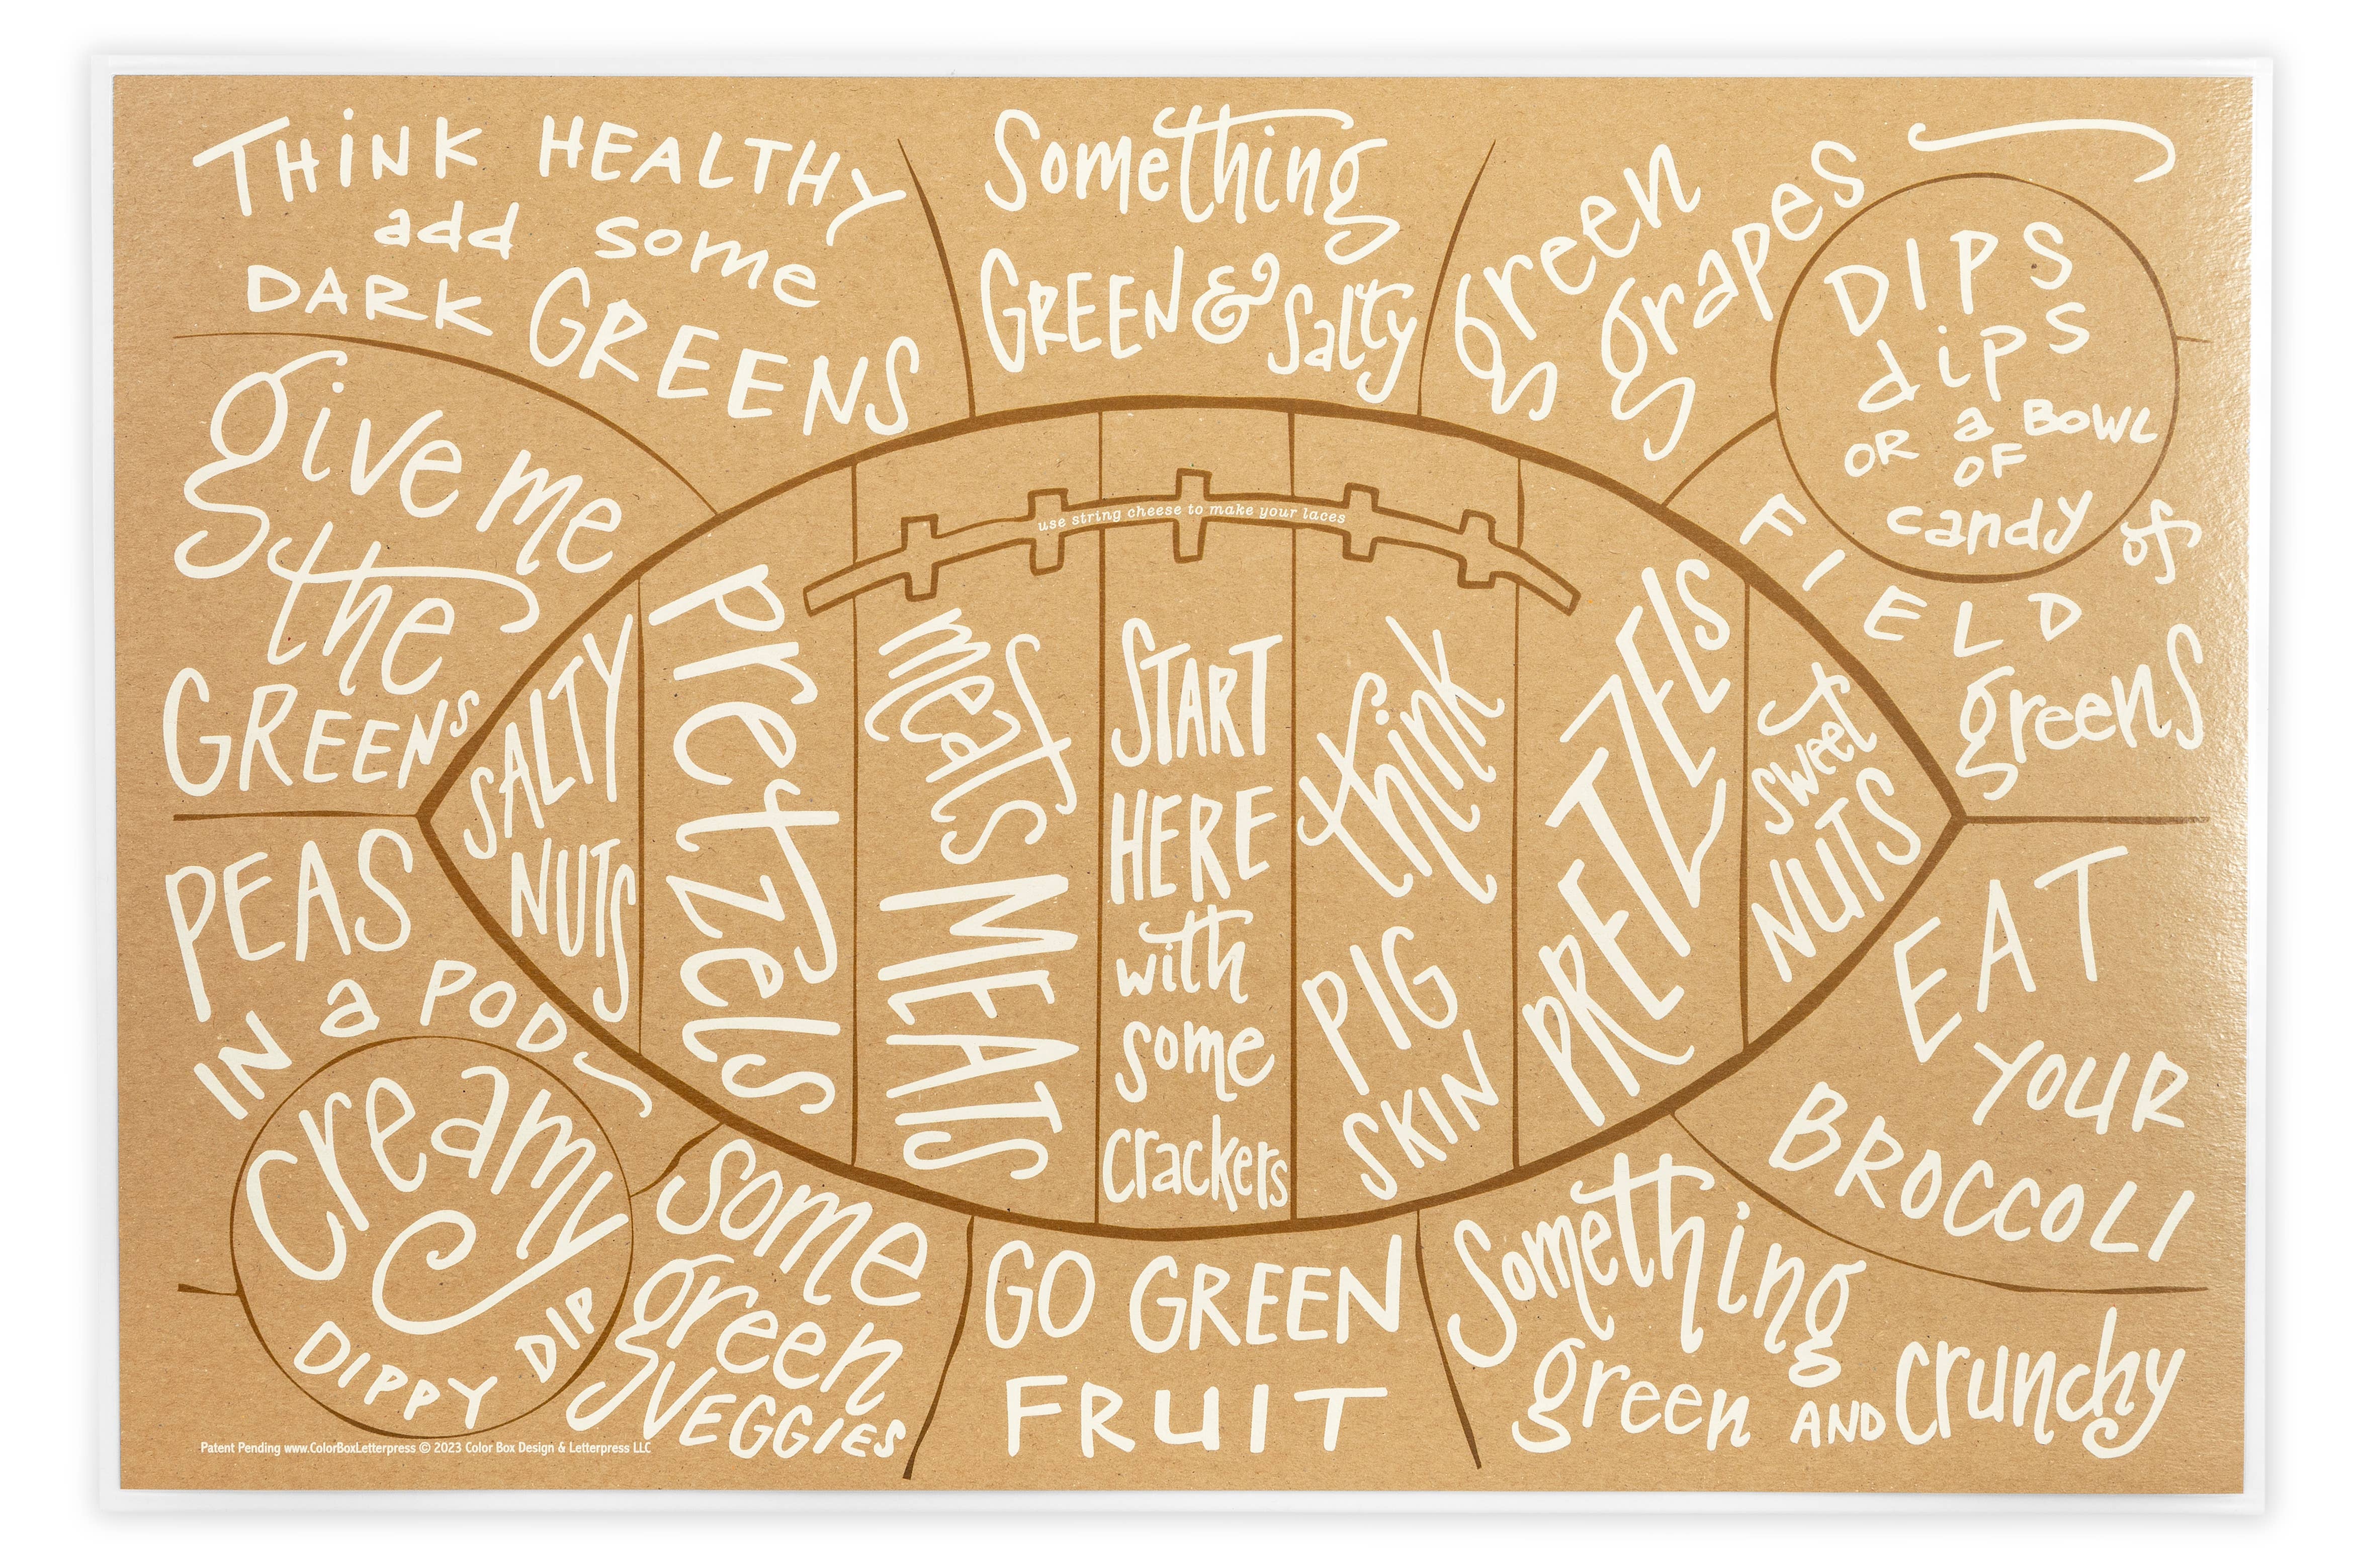 THiNK HEALTHY
add some
DARK GREENS
Something
GREEN & Salty
green
grapes
DIPS
dips
OR a BOWL
OF
candy
give me
the
GREENS
use string cheese to make your laces
FIELD of
greens
SALTY
NUTS
Pretzels
meats
MEATS
START
HERE
with
some
crackers
think
PIG
SKIN
PRETZELS
sweet
NUTS
PEAS
IN a POD
EAT
YOUR
BROCCOLI
Creamy
DIPPY DIP
Some
green
VEGGIES
GO GREEN
FRUIT
Something
green AND crunchy
Patent Pending www.ColorBoxLetterpress © 2023 Color Box Design & Letterpress LLC